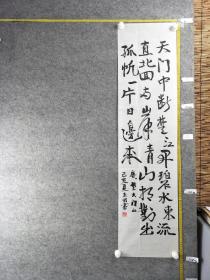 天门中断楚江开碧水东流
直北回两岸青山相对出
孤帆一片日邊来
望天门山
己亥夏